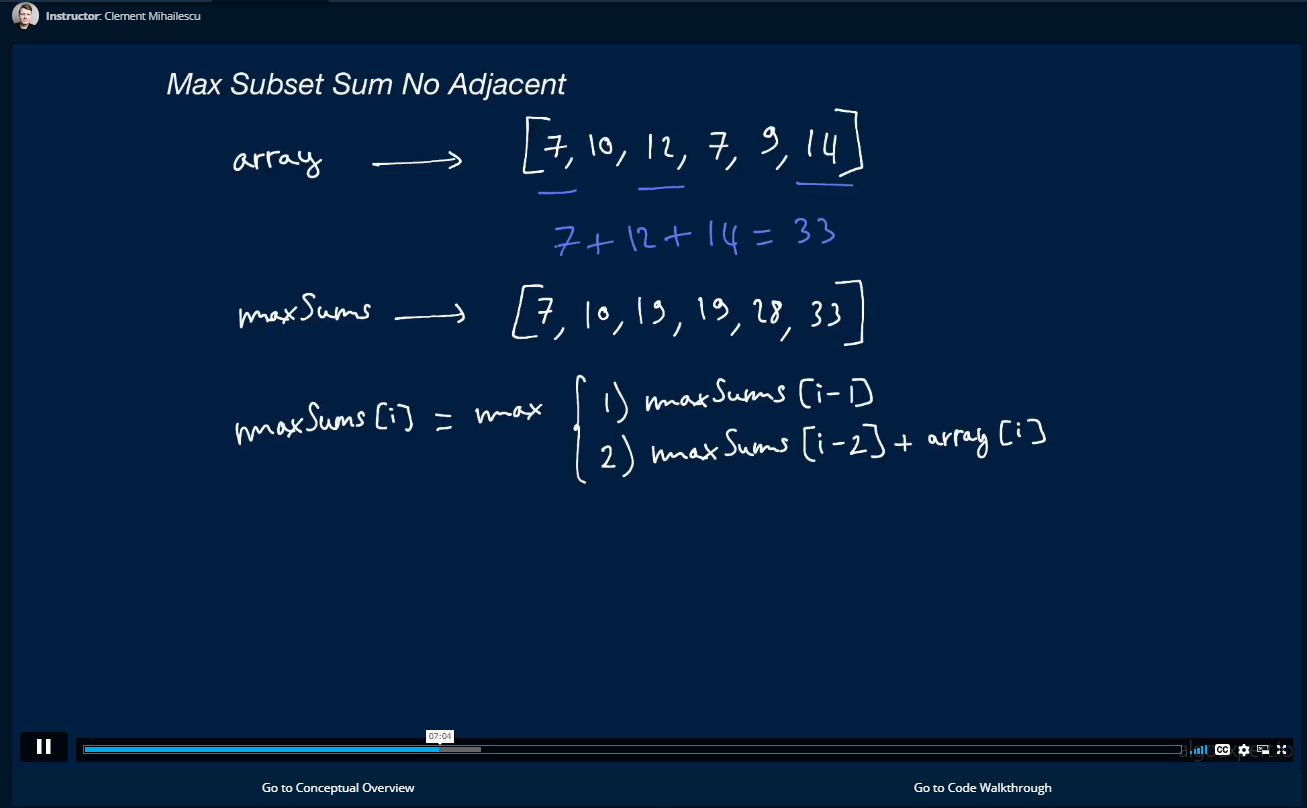 Instructor: Clement Mihailescu
Max Subset Sum No Adjacent
array → [7, 10, 12, 7, 9, 14]
7 + 12 + 14 = 33
maxSums → [7, 10, 19, 19, 28, 33]
maxSums[i] = max { 1) maxSums [i-1]
2) maxSums [i-2] + array [i]
07:04
CC
algoexpert.io
Go to Conceptual Overview
Go to Code Walkthrough